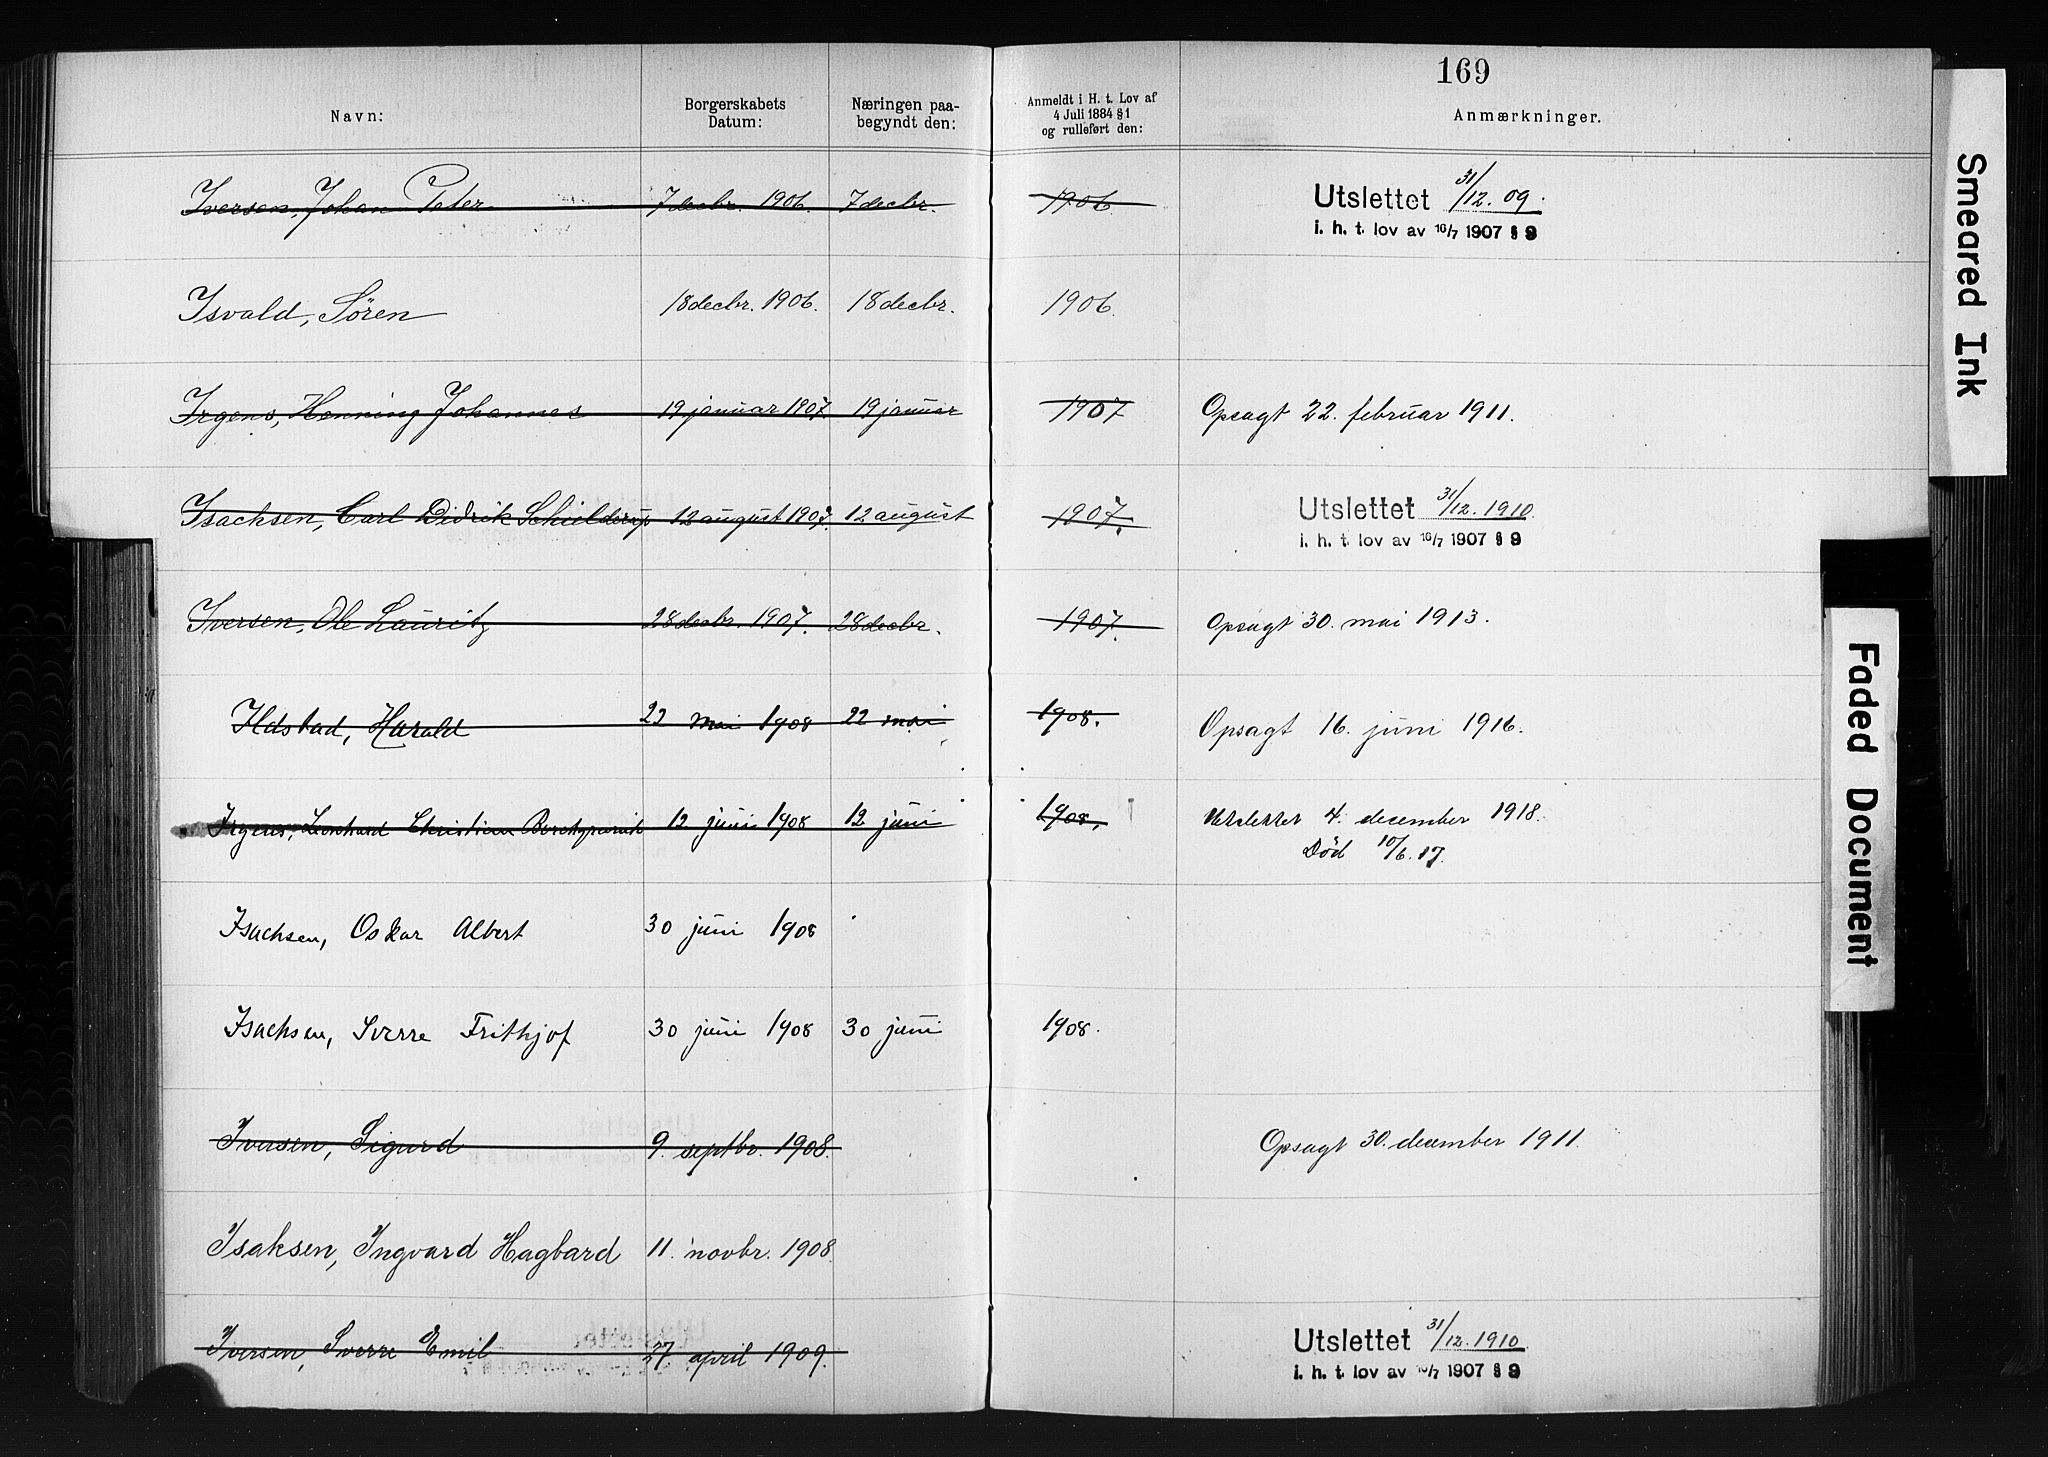 169
Navn: Borgerskabets Datum: Næringen paa-begyndt den: Anmeldt i H. t. Lov af 4 Juli 1884 § 1 og rulleført den: Anmærkninger.
Iversen, Johan Peter 7 decbr. 1906. 7 decbr. 1906 Utslettet 31/12. 09.
i. h. t. lov av 16/7 1907 § 9
Isvald, Sören 18 decbr. 1906. 18 decbr. 1906.
Irgens, Henning Johannes 19 januar 1907. 19 januar 1907 Opsagt 22. februar 1911.
Isachsen, Carl Didrik Schielderup 12 august 1907. 12 august 1907. Utslettet 31/12. 1910.
i. h. t. lov av 16/7 1907 § 9
Iversen, Ole Lauritz 28 decbr. 1907. 28 decbr. 1907. Opsagt 30. mai 1913.
Ildstad, Harald 22 mai 1908 22 mai 1908. Opsagt 16. juni 1916.
Irgens, Leonhard Christian Borchgrevink 12 juni 1908 12 juni 1908. Utslettet 4. december 1918.
Død 10/6. 17.
Isachsen, Oskar Albert 30 juni 1908
Isachsen, Sverre Frithjof 30 juni 1908 30 juni 1908.
Iversen, Sigurd 9. septbr. 1908. Opsagt 30. december 1911.
Isaksen, Ingvard Hagbard 11. novbr. 1908.
Iversen, Sverre Emil 27. april 1909. Utslettet 31/12. 1910.
i. h. t. lov av 16/7 1907 § 9
Smeared Ink
Faded Document